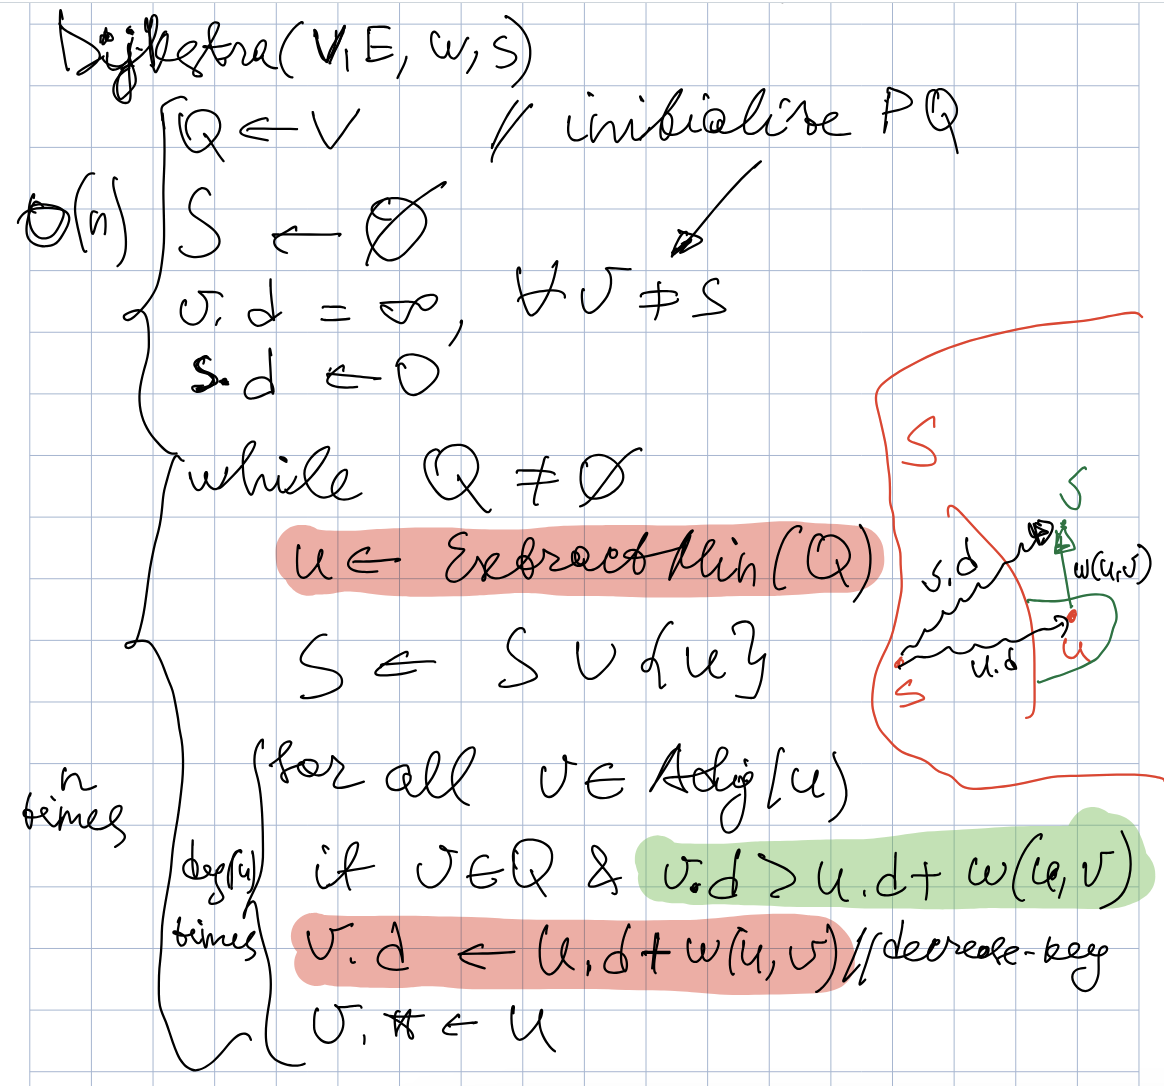 Dijkstra(V, E, w, s)
Q ← V // initialize PQ
Θ(n)
S ← ∅
v.d = ∞, ∀ v ≠ s
s.d ← 0
while Q ≠ ∅
u ← ExtractMin(Q)
S ← S ∪ {u}
for all v ∈ Adj[u]
n times
if v ∈ Q & v.d > u.d + w(u,v)
deg(u) times
v.d ← u.d + w(u,v) // decrease-key
v.π ← u
S
v
v.d
w(u,v)
u
u.d
s